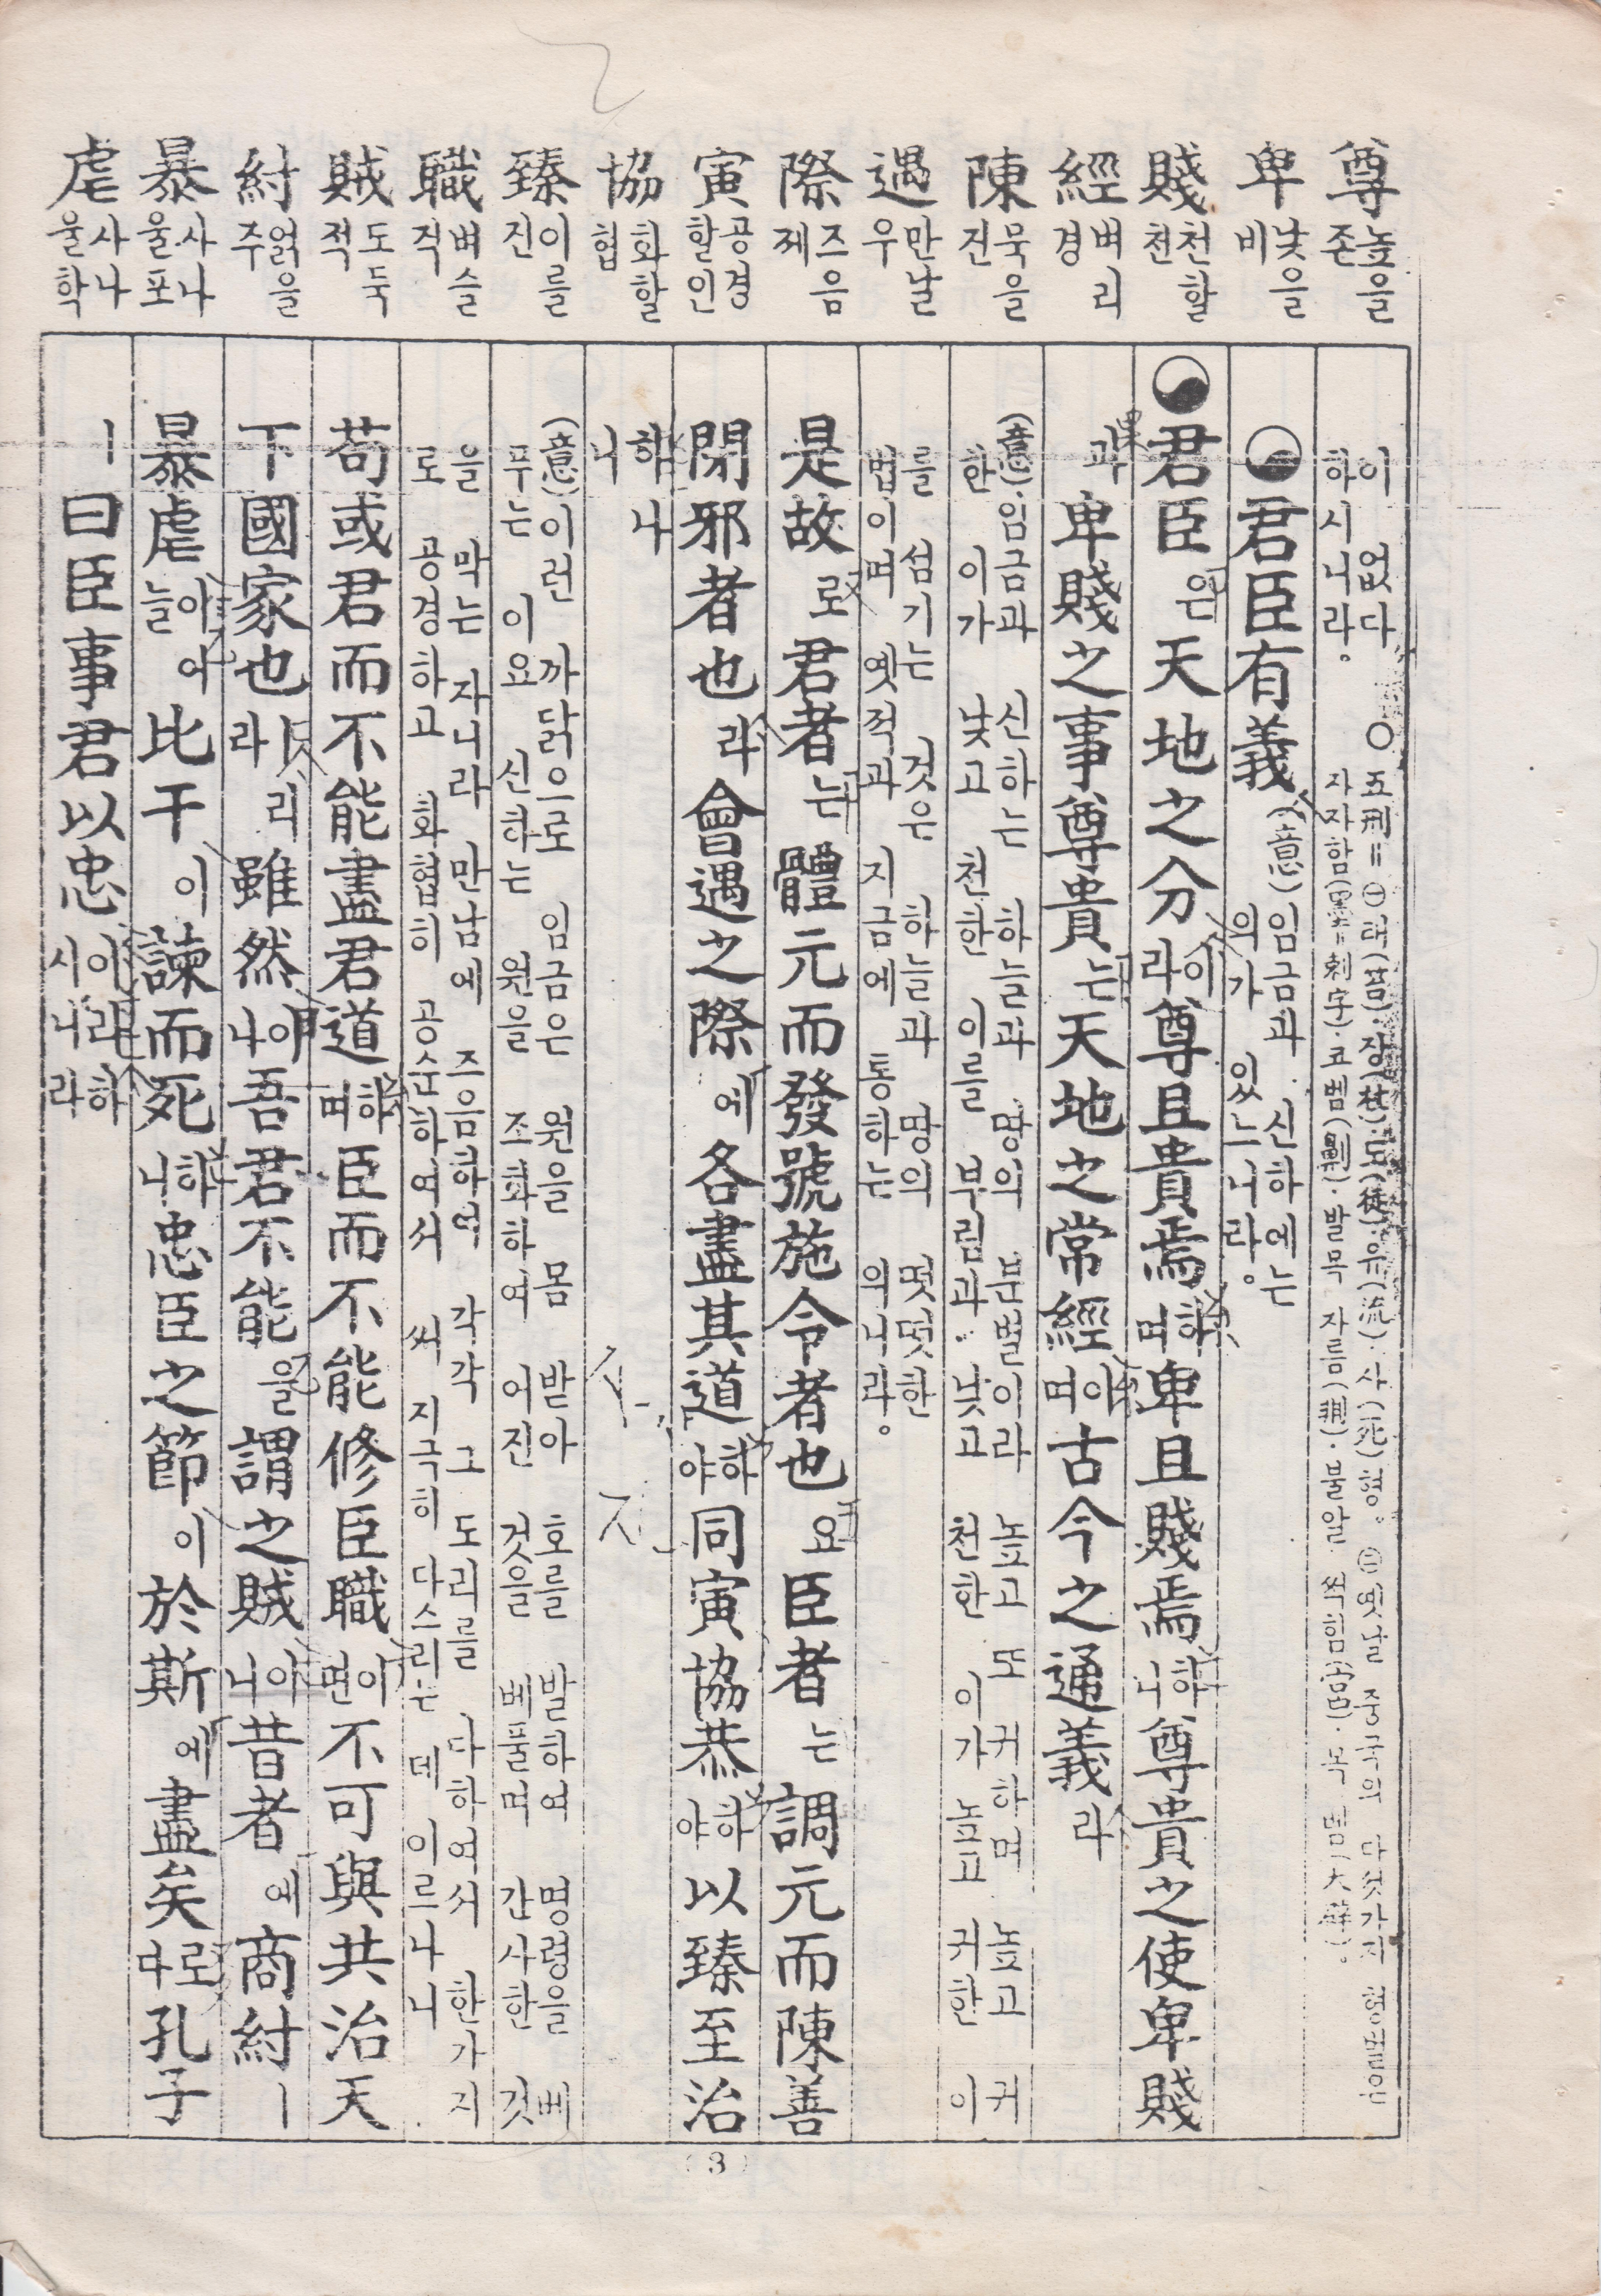 尊 높을 존
卑 낮을 비
賤 천할 천
經 벼리 경
陳 묵을 진
遇 만날 우
際 즈음 제
寅 공경할 인
協 화할 협
臻 이를 진
職 벼슬 직
賊 도둑 적
紂 얽을 주
暴 사나울 포
虐 사나울 학
이 없다
하시니라。
○ 五刑＝㊀태(笞)·장(杖)·도(徒)·유(流)·사(死)형。㊁옛날 중국의 다섯가지 형벌은
자자함(墨＝刺字)·코벰(劓)·발목 자름(剕)·불알 썩힘(宮)·목 벰(大辟)。
君臣有義 (意)임금과 신하에는
의가 있느니라。
君臣은 天地之分이라 尊且貴焉하며 卑且賤焉하니 尊貴之使卑賤
과 卑賤之事尊貴는 天地之常經이며 古今之通義라
(意)·임금과 신하는 하늘과 땅의 분별이라 높고 또 귀하며 높고 귀
한 이가 낮고 천한 이를 부림과· 낮고 천한 이가 높고 귀한 이
를 섬기는 것은 하늘과 땅의 떳떳한
법이며 옛적과 지금에 통하는 의니라。
是故로 君者는 體元而發號施令者也요 臣者는 調元而陳善
閉邪者也라 會遇之際에 各盡其道하야 同寅協恭하야 以臻至治
하나니
(意)이런 까닭으로 임금은 원을 몸 받아 호를 발하여 명령을 베
푸는 이요 신하는 원을 조화하여 어진 것을 베풀며 간사한 것
을 막는 자니라 만남에 즈음하여 각각 그 도리를 다하여서 한가지
로 공경하고 화협히 공순하여서 써 지극히 다스리는 데 이르나니
苟或君而不能盡君道하며 臣而不能修臣職이면 不可與共治天
下國家也라 리 雖然이나 吾君不能을 謂之賊이니 昔者에 商紂ㅣ
暴虐이어늘 比干이 諫而死하니 忠臣之節이 於斯에 盡矣로다 孔子
ㅣ曰臣事君以忠이라하시니라
(3)